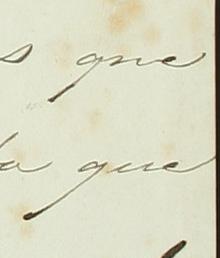 s que
la que